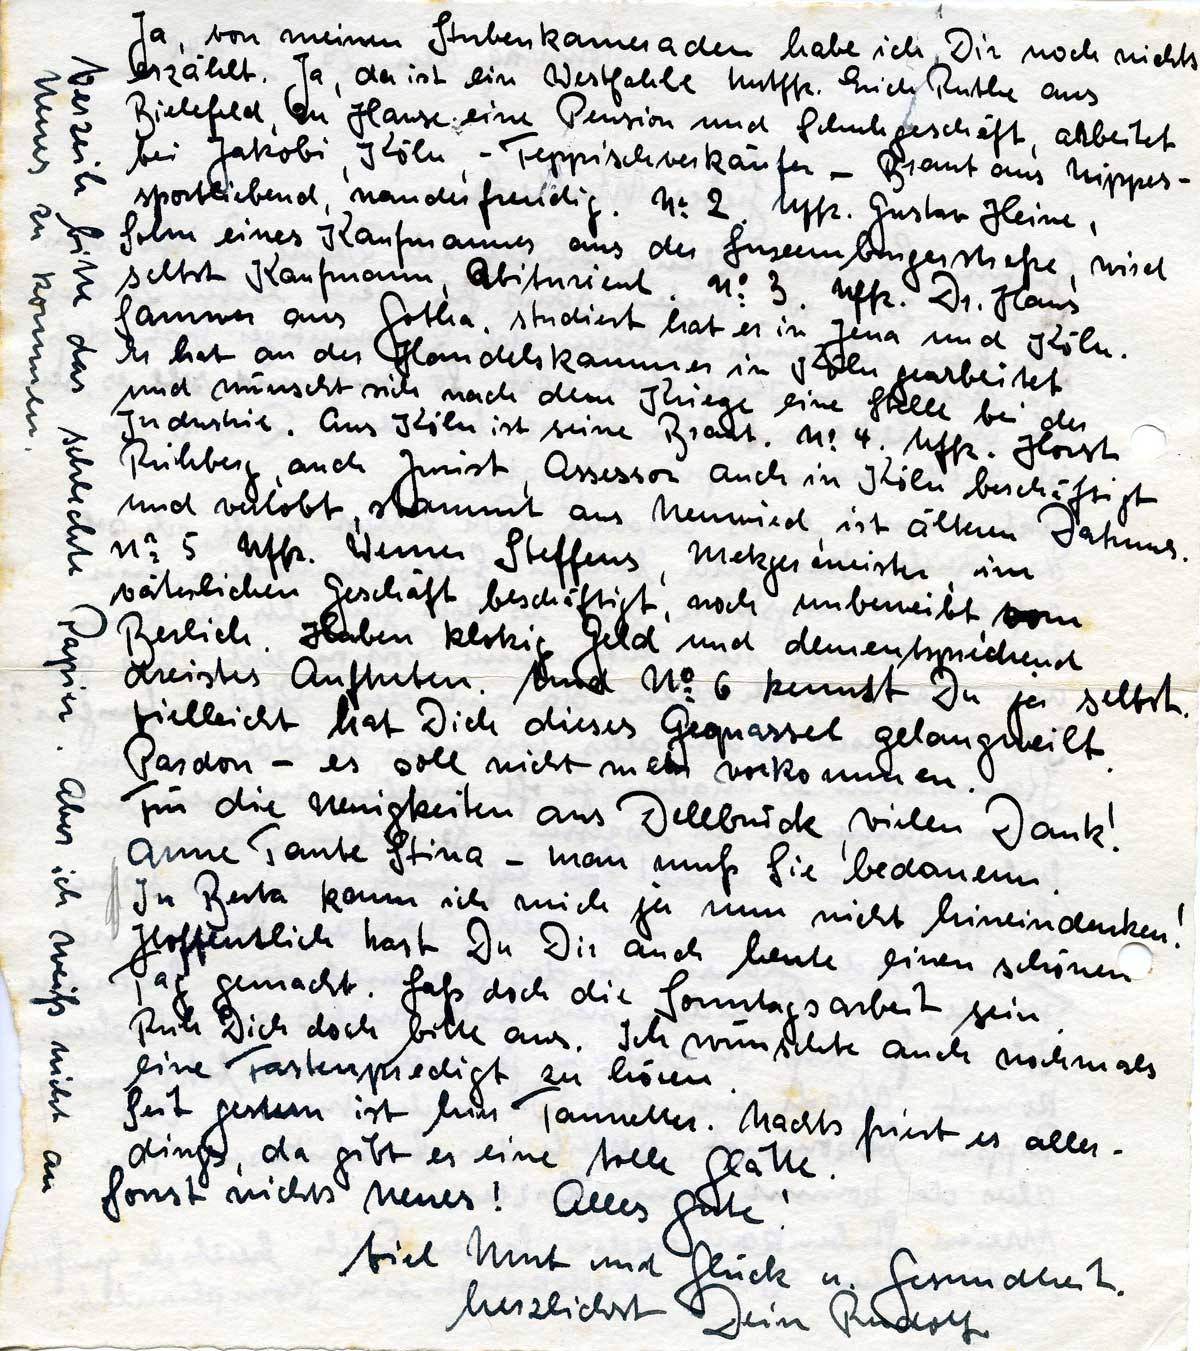 Ja, von meinen Stubenkameraden habe ich Dir noch nichts
erzählt. Ja, da ist ein Westfahle Uuffz. Erich Ruthe aus
Bielefeld, zu Hause eine Pension und Schuhgeschäft, arbeitet
bei Jakobi, Köln, - Teppischverkäufer - Braut aus Nippes -
sportliebend, wanderfreudig. No 2. Uffz. Gustav Heine,
Sohn eines Kaufmannes aus der Luxemburgerstraße, wird
selbst Kaufmann, Abiturient. No 3. Uffz. Dr. Hans
Sammer aus Gotha, studiert hat er in Jena und Köln.
Er hat an der Handelskammer in Köln gearbeitet
und wünscht sich nach dem Kriege eine Stelle bei der
Industrie. Aus Köln ist seine Braut. No 4. Uffz. Horst
Rühberg, auch Jurist, Assessor auch in Köln beschäftigt
und verlobt, stammt aus Neuwied, ist älteren Datums.
No 5 Uffz. Werner Steffens, Metzgermeister, im
väterlichen Geschäft beschäftigt, noch unbeweibt vom
Berlich. Haben klotzig Geld und dementsprechend
dreistes Auftreten. Und No 6 kennst Du ja selbst.
Vielleicht hat Dich dieses Gequassel gelangweilt.
Pardon - es soll nicht mehr vorkommen.
Für die Neuigkeiten aus Dellbrück, vielen Dank!
Arme Tante Stina - man muß Sie bedauern.
In Berta kann ich mich ja nun nicht hineindenken!
Hoffentlich hast Du Dir auch heute einen schönen
Tag gemacht. Laß doch die Sonntagsarbeit sein.
Ruh Dich doch bitte aus. Ich wünschte auch nochmals
eine Fastenpredigt zu hören.
Seit gestern ist hier Tauwetter. Nachts friert es aller-
dings, da gibt es eine tolle Glätte.
Sonst nichts Neues! Alles Gute!
Viel Mut und Glück u. Gesundheit.
herzlichst Dein Rudolf.
Verzeih bitte das schlechte Papier. Aber ich weiß nicht an
neues zu kommen.